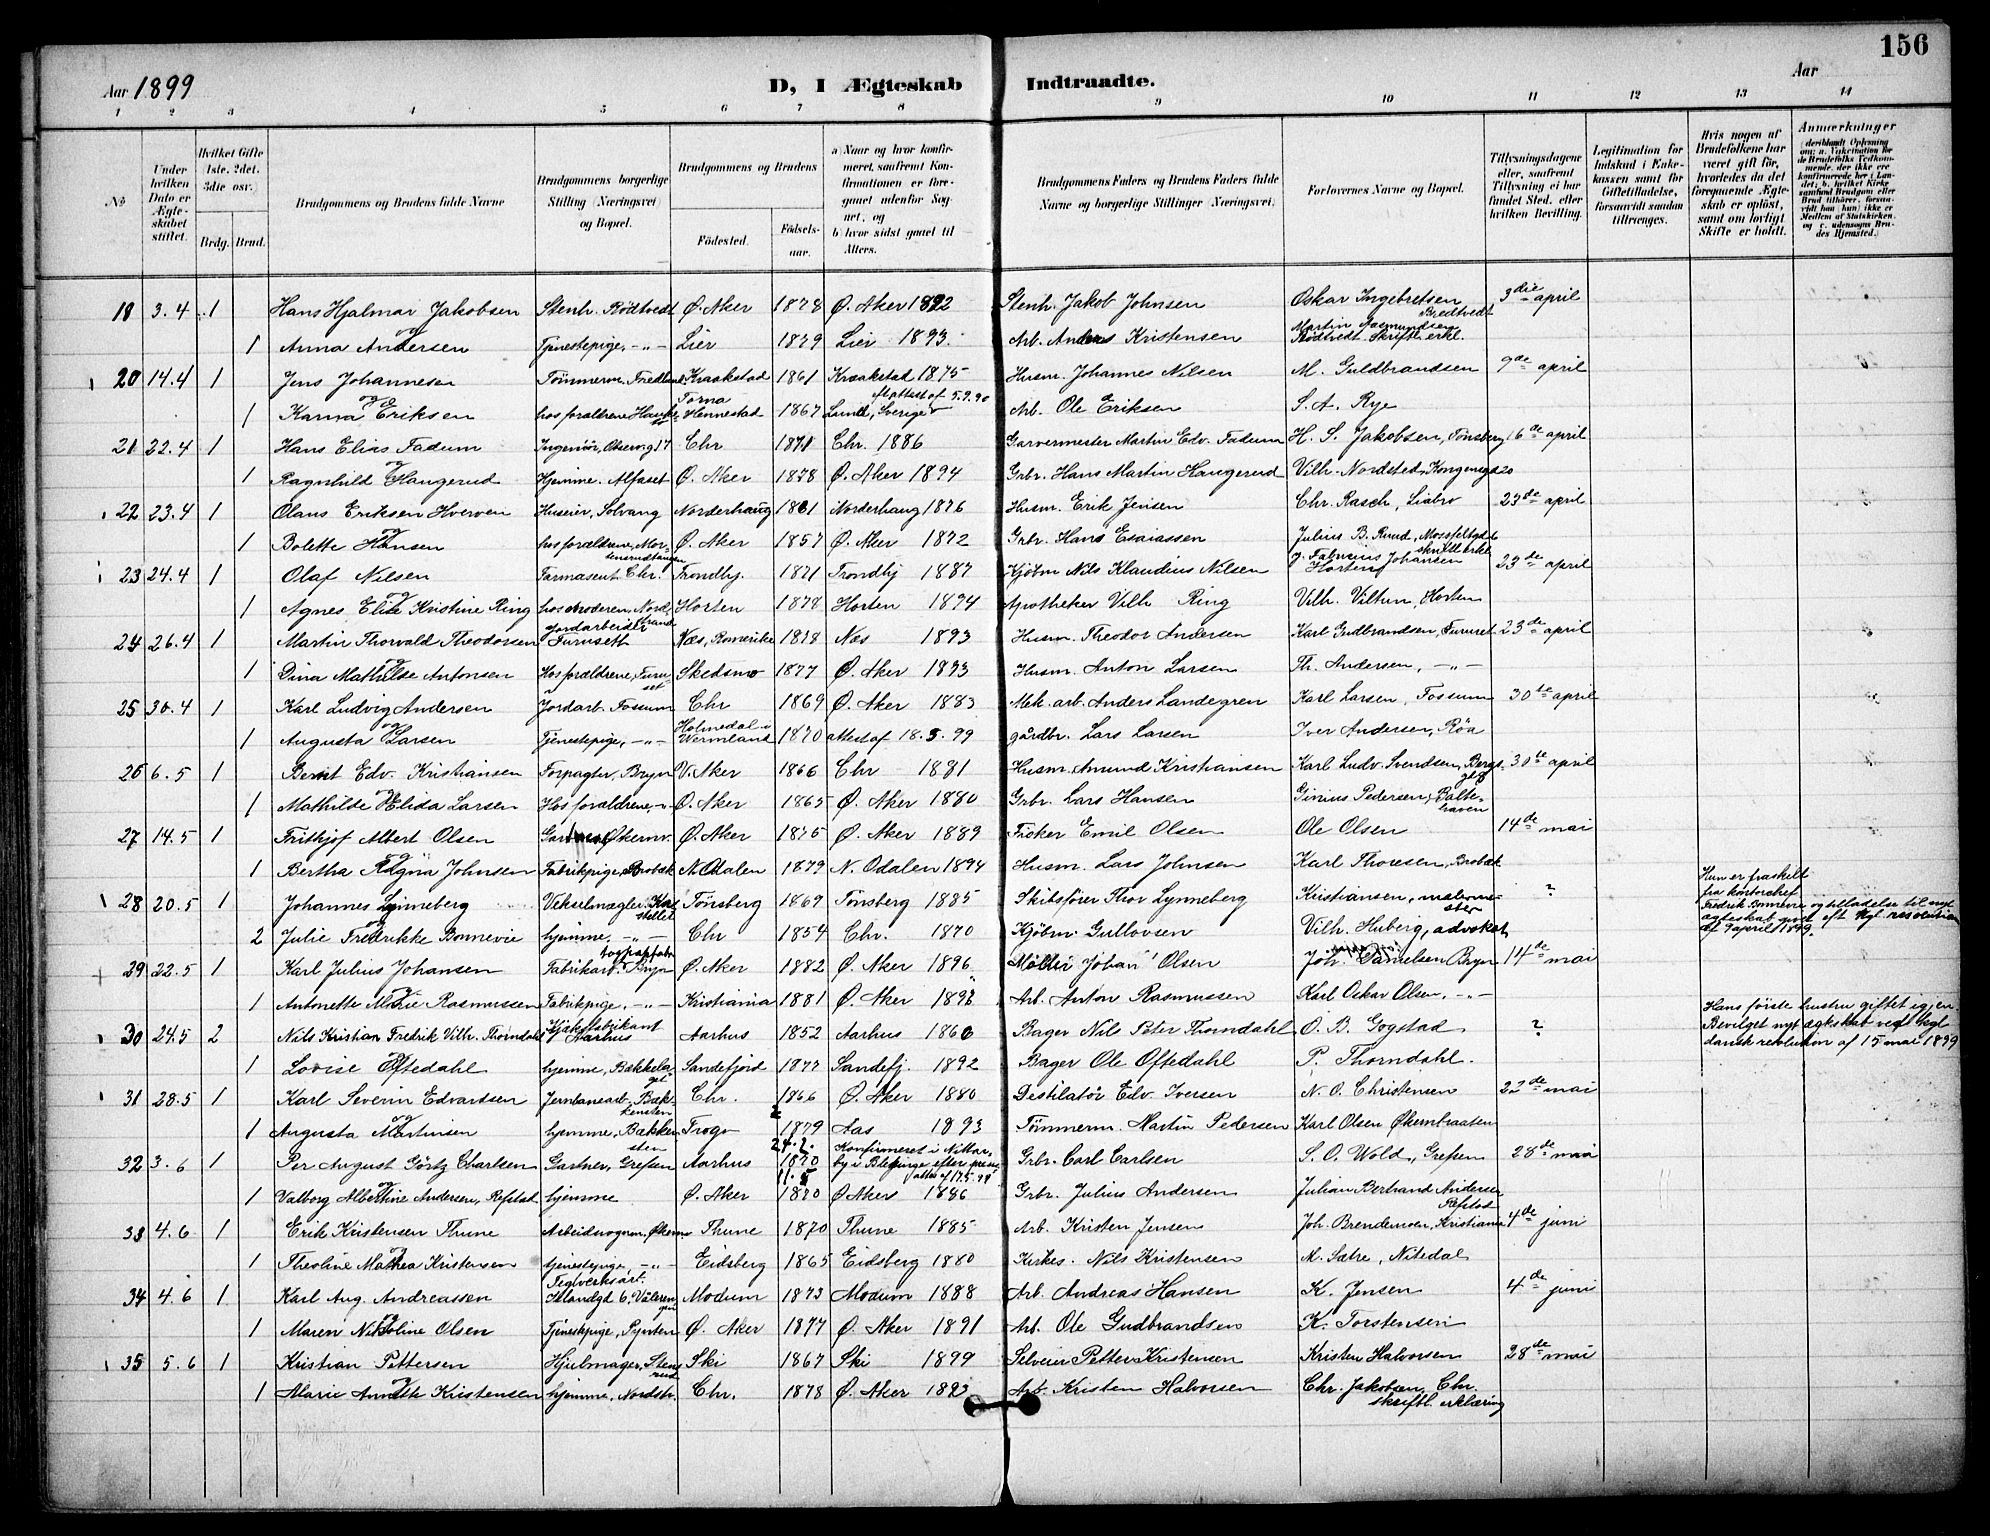 156
Aar 1899
D, I Ægteskab Indtraadte.
Aar
1 2 3 4 5 6 7 8 9 10 11 12 13 14
No
Under hvilken Dato er Ægteskabet stiftet.
Hvilket Gifte 1ste, 2det, 3die osv.
Brdg. Brud.
Brudgommens og Brudens fulde Navne
Brudgommens borgerlige Stilling (Næringsvei) og Bopæl.
Brudgommens og Brudens
Fødested. Fødselsaar.
a) Naar og hvor konfirmeret, saafremt Konfirmationen er foregaaet udenfor Sognet, og b) hvor sidst gaaet til Alters.
Brudgommens Faders og Brudens Faders fulde Navne og borgerlige Stillinger (Næringsvei).
Forlovernes Navne og Bopæl.
Tillysningsdagene eller, saafremt Tillysning ei har fundet Sted, efter hvilken Bevilling.
Legitimation for Indskud i Enkekassen samt for Giftetilladelse, forsaavidt saadan tiltrænges.
Hvis nogen af Brudefolkene har været gift før, hvorledes da det foregaaende Ægteskab er opløst, samt om lovligt Skifte er holdt.
Anmærkninger
19 3.4 1 Hans Hjalmar Jakobsen Stenh. Rödtvedt Ø. Aker 1878 Ø. Aker 1892 Stenh. Jakob Johnsen Oskar Ingebretsen Bredtvedt 3die april
og 1 Anna Andersen Tjenestepige, -"- Lier 1879 Lier 1893 Arb. Anders Kristensen Martin Aasmundsen Rødtvedt Skriftl. erkl.
20 14.4 1 Jens Johannesen Tömmerm. Kraakstad 1861 Kraakstad 1875 Husm. Johannes Nilsen M. Guldbrandsen 9de april
og 1 Karna Eriksen hos forældrene Torna Hennestad 1867 Lund, Sverige eft. attest af 5.9.90 Arb. Ole Eriksen S. A. Rye
21 22.4 1 Hans Elias Fadum Ingeniör, Observ.g 17 Chr 1871 Chr. 1886 Garvermester Martin Edv. Fadum H. S. Jakobsen, Tönsberg 16de april
og 1 Ragnhild Haugerud Hjemme. Alfaset Ø. Aker 1878 Ø. Aker 1894 Grbr. Hans Martin Haugerud Vilh. Nordsted, Kongensgd 20
22 23.4 1 Olaus Eriksen Hverven Huseier, Solvang Norderhaug 1861 Norderhaug 1876 Husm. Erik Jensen Chr. Rasch, Liabro 23de april
og 1 Bolette Hansen hos forældrene, Mortensrudtangen Ø. Aker 1857 Ø. Aker 1872 Grbr. Hans Esaiassen Julius B. Ruud, skriftl erkl
23 24.4 1 Olaf Nilsen Farmaseut. Chr. Trondhj. 1871 Trondhj 1887 Kjöbm Nils Klaudius Nilsen J. Fabricius Johansen Horten 23de april
og 1 Agnes Elise Kristine Ring hos moderen, Nordstrand Horten 1878 Horten 1894 Apotheker Vilh Ring Vilh. Horten
24 26.4 1 Martin Thorvald Theodorsen Jordarbeider Furuseth Næs, Romerike 1878 Næs 1893 Husm. Theodor Andersen Karl Gudbrandsen, Furuset 23de april
og 1 Dina Mathilde Antonsen Hos forældrene, Furuset Skedsmo 1877 Ø. Aker 1893 Husm. Anton Larsen Th. Andersen, -"-
25 30.4 1 Karl Ludvig Andersen Jordarb. Fossum Chr 1869 Ø. Aker 1883 Mek. arb. Anders Landegren Karl Larsen, Fossum 30te april
og 1 Augusta Larsen Tjenestepige, -"- Holmedal i Wermland 1870 Attest af 18.3.99 gårdbr. Lars Larsen Iver Andersen, Röa
26 6.5 1 Bernt Edv. Kristiansen Forpagter, Bryn V. Aker 1866 Chr 1881 Husm. Amund Kristiansen Karl Ludv. Svendsen, 30te april
og 1 Mathilde Elida Larsen Hos forældrene, -"- Ø. Aker 1865 Ø. Aker 1880 Grbr. Lars Hansen Ginius Pedersen,
27 14.5 1 Frithjof Albert Olsen Økernv. Ø. Aker 1875 Ø. Aker 1889 Fisker Emil Olsen Ole Olsen 14de mai
og 1 Bertha Ragna Johnsen Fabrikpige, Brobæk N. Odalen 1879 N. Odalen 1894 Husm. Lars Johnsen Karl Thoresen, Brobæk
28 20.5 1 Johannes Lynneberg Vekselmægler. Kastellet Tönsberg 1867 Tönsberg 1885 Skibsförer Thor Lynneberg Kristiansen, malermester ? Hun er fraskelt fra kontorchef Fredrik Bonnevie og tilladelse til nyt ægteskab givet eft. kgl. resolution af 9 april 1899.
og 2 Julie Fredrikke Bonnevie hjemme, -"- Chr 1854 Chr. 1870 Kjöbm. Gulløvsen Vilh. Huberg, advokat
29 22.5 1 Karl Julius Johansen Fabrikarb. Bryn Ø. Aker 1882 Ø. Aker 1896 Johan Olsen Joh. Danielsen Bryn 14de mai
og 1 Antonette Marie Rasmussen Fabrikpige, -"- Kristiania 1881 Ø. Aker Arb. Anton Rasmussen Karl Oskar Olsen, -"-
30 24.5 2 Nils Kristian Fredrik Vilh. Thorndahl Aarhus Aarhus 1852 Aarhus 1866 Bager Nils Peter Thorndahl O. B. Gogstad ? Hans förste hustru giftet igjen. Bevilget nyt ægteskab ved kgl dansk resolution af 15 mai 1899
og 1 Lovise Oftedahl hjemme, Bækkelaget Sandefjord 1877 Sandefj. 1892 Bager Ole Oftedahl P. Thorndahl.
31 28.5 1 Karl Severin Edvardsen Jernbanearb. Bækkensten Chr. 1866 Ø. Aker 1880 Destilatör Edv. Iversen N. O. Christensen 22de mai
og 1 Augusta Martinsen hjemme, Bækkensten Trogst. 1879 Aas 1893 Tömmerm. Martin Pedersen Karl Olsen
32 3.6 1 Per August Görtz Charlsen Gartner, Grefsen Aarhus 24.2. 1870 Konfirmeret i Nättraby i Bleginge efter attest af 17.5.99 Grbr. Carl Carlsen S. O. Wold, Grefsen 28de mai
og 1 Valborg Albertine Andersen, Refstad hjemme Ø. Aker 11.5 1870 Ø Aker 1886 Grbr. Julius Andersen Julian Bertrand Andersen Refstad
33 4.6 1 Erik Kristensen Thune Arbeidsvognm. Økern Thune 1870 Thune 1885 Arb. Kristen Jensen Joh. Brendemoen, Kristiania 4de juni
og 1 Theoline Mathea Kristensen tjenestepige, -"- Eidsberg 1865 Eidsberg 1880 Kirkes. Nils Kristensen M. Sætre, Nitedal
34 4.6 1 Karl Aug. Andreassen Teglverksarb. Islandgd 6, Vålerengen Modum 1873 Modum 1888 Arb. Andreas Hansen K. Jensen 4de juni
og 1 Maren Nikoline Olsen Tjenestepige, Pynten Ø. Aker 1877 Ø. Aker 1891 Arb. Ole Gudbrandsen K. Torstensen
35 5.6 1 Kristian Pettersen Hjulmager, Stensrud Ski 1867 Ski 1899 Selveier Petter Kristensen Kristen Halvorsen 28de mai
og 1 Marie Annette Kristensen hjemme, Nordstr. Chr. 1878 Ø. Aker 1893 Arb. Kristen Halvorsen Chr. Jakobsen, Chr. skriftl. erklæring